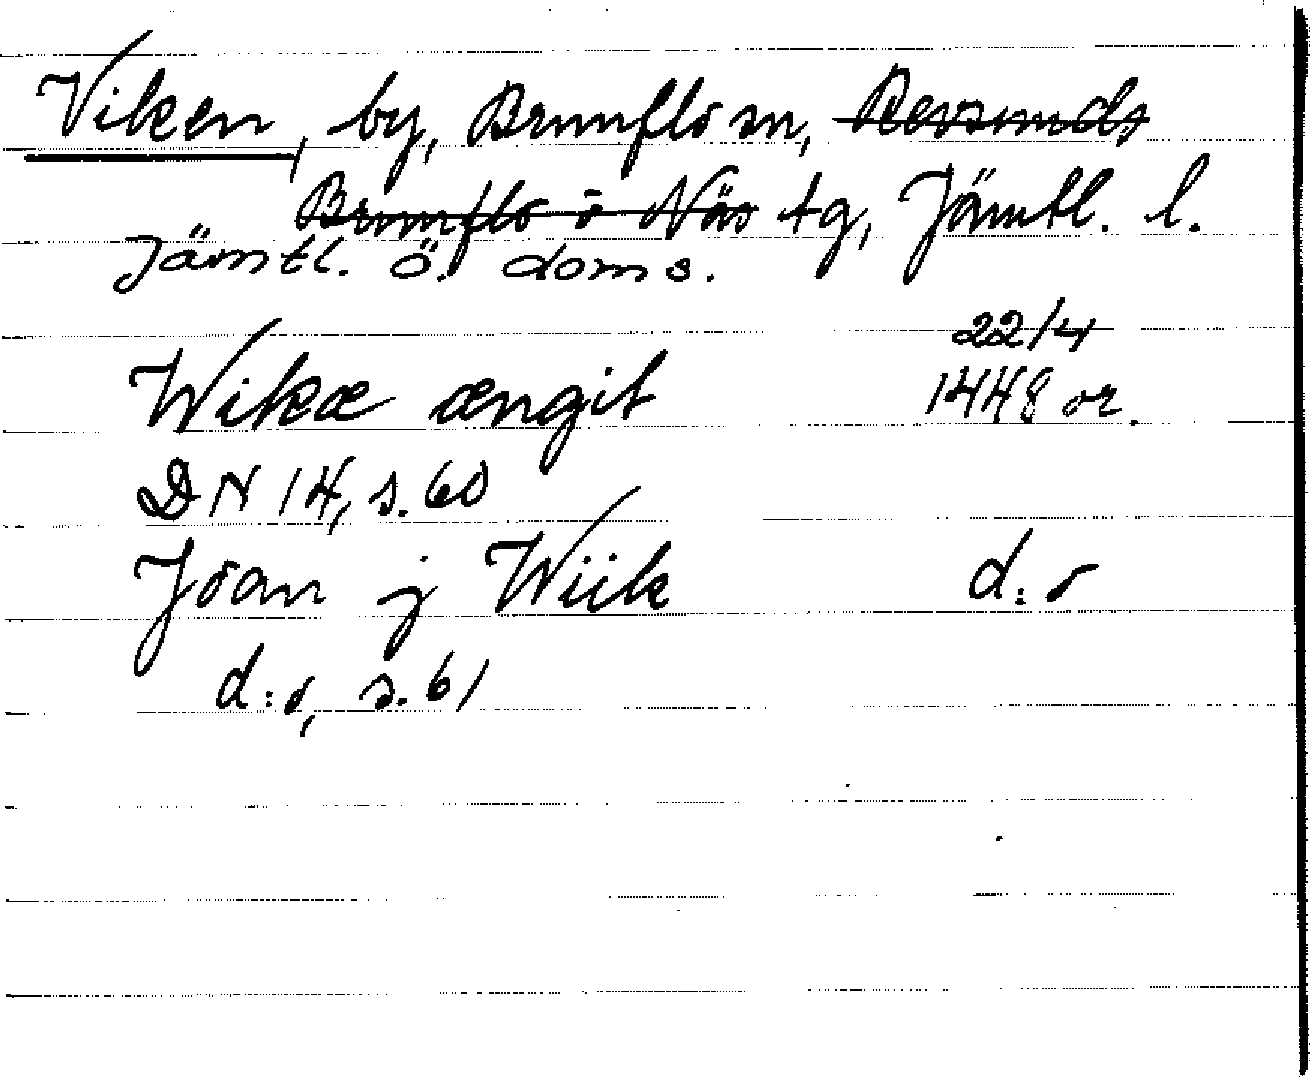 Viken, by, Brunflo sn, Revsunds
Brunflo o Näs tg, Jämtl. l.
Jämtl. ö. doms.
22/4
Wikæ ængit 1448 or.
DN 14, s. 60
Joan j Wiik d:o
d:o, s. 61